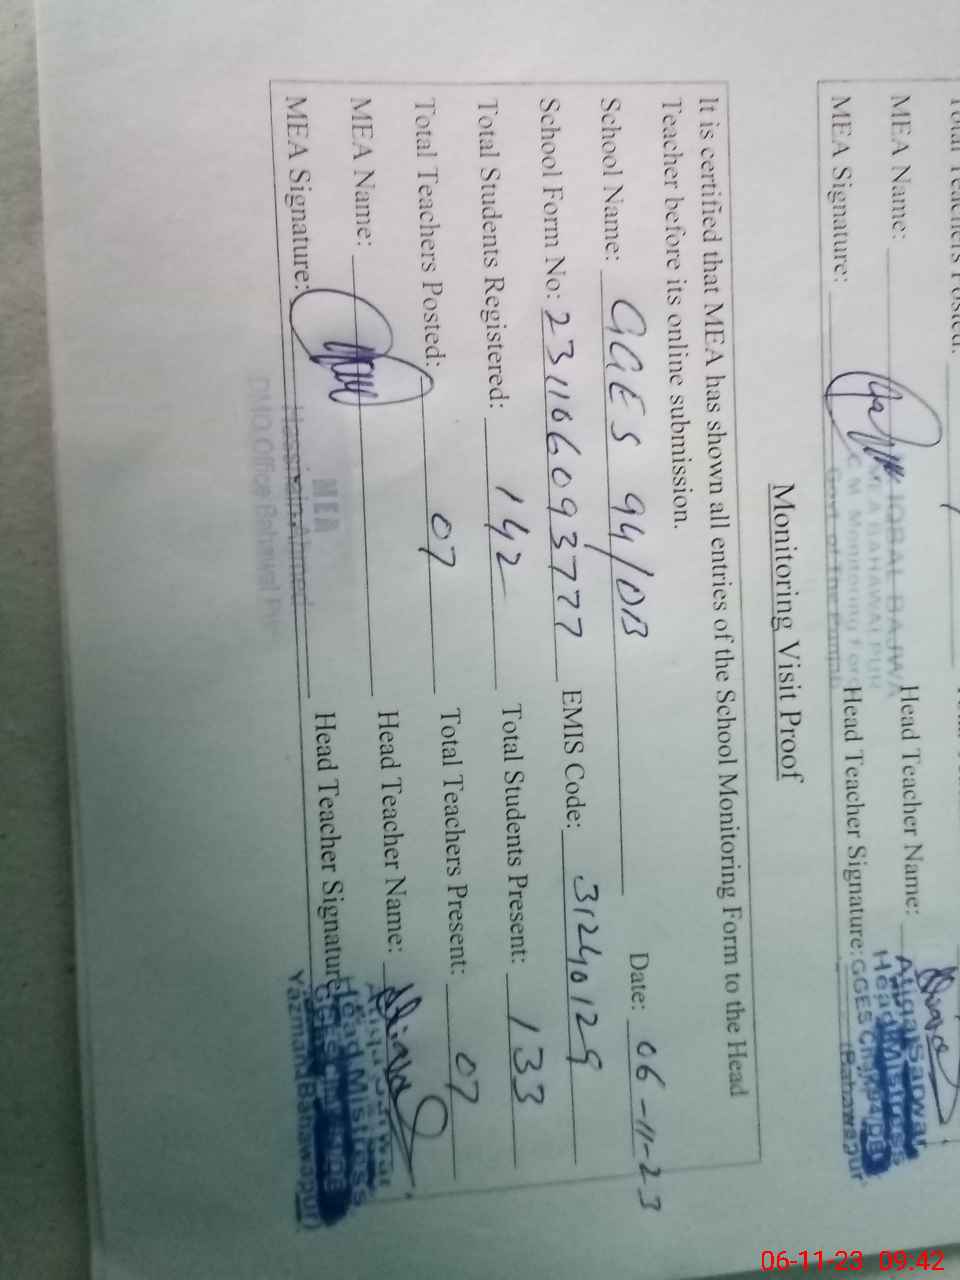 Total Teachers Posted:
MEA Name: Head Teacher Name:
IQBAL BAJWA
MEA BAHAWALPUR
C.M. Monitoring Force
Govt of The Punjab
MEA Signature: Head Teacher Signature:
Atiqa Sarwar
Head Mistress
GGES Chak 94/DB
(Bahawapur
Monitoring Visit Proof
It is certified that MEA has shown all entries of the School Monitoring Form to the Head
Teacher before its online submission.
School Name: GGES 94/DB Date: 06-11-23
School Form No: 231166093777 EMIS Code: 31240129
Total Students Registered: 142 Total Students Present: 133
Total Teachers Posted: 07 Total Teachers Present: 07
MEA Name: Head Teacher Name:
MEA Signature: Head Teacher Signature:
MEA
DMO Office Bahawal
Atiqa Sarwar
Head Mistress
Yazman (Bahawapur)
06-11-23 09:42